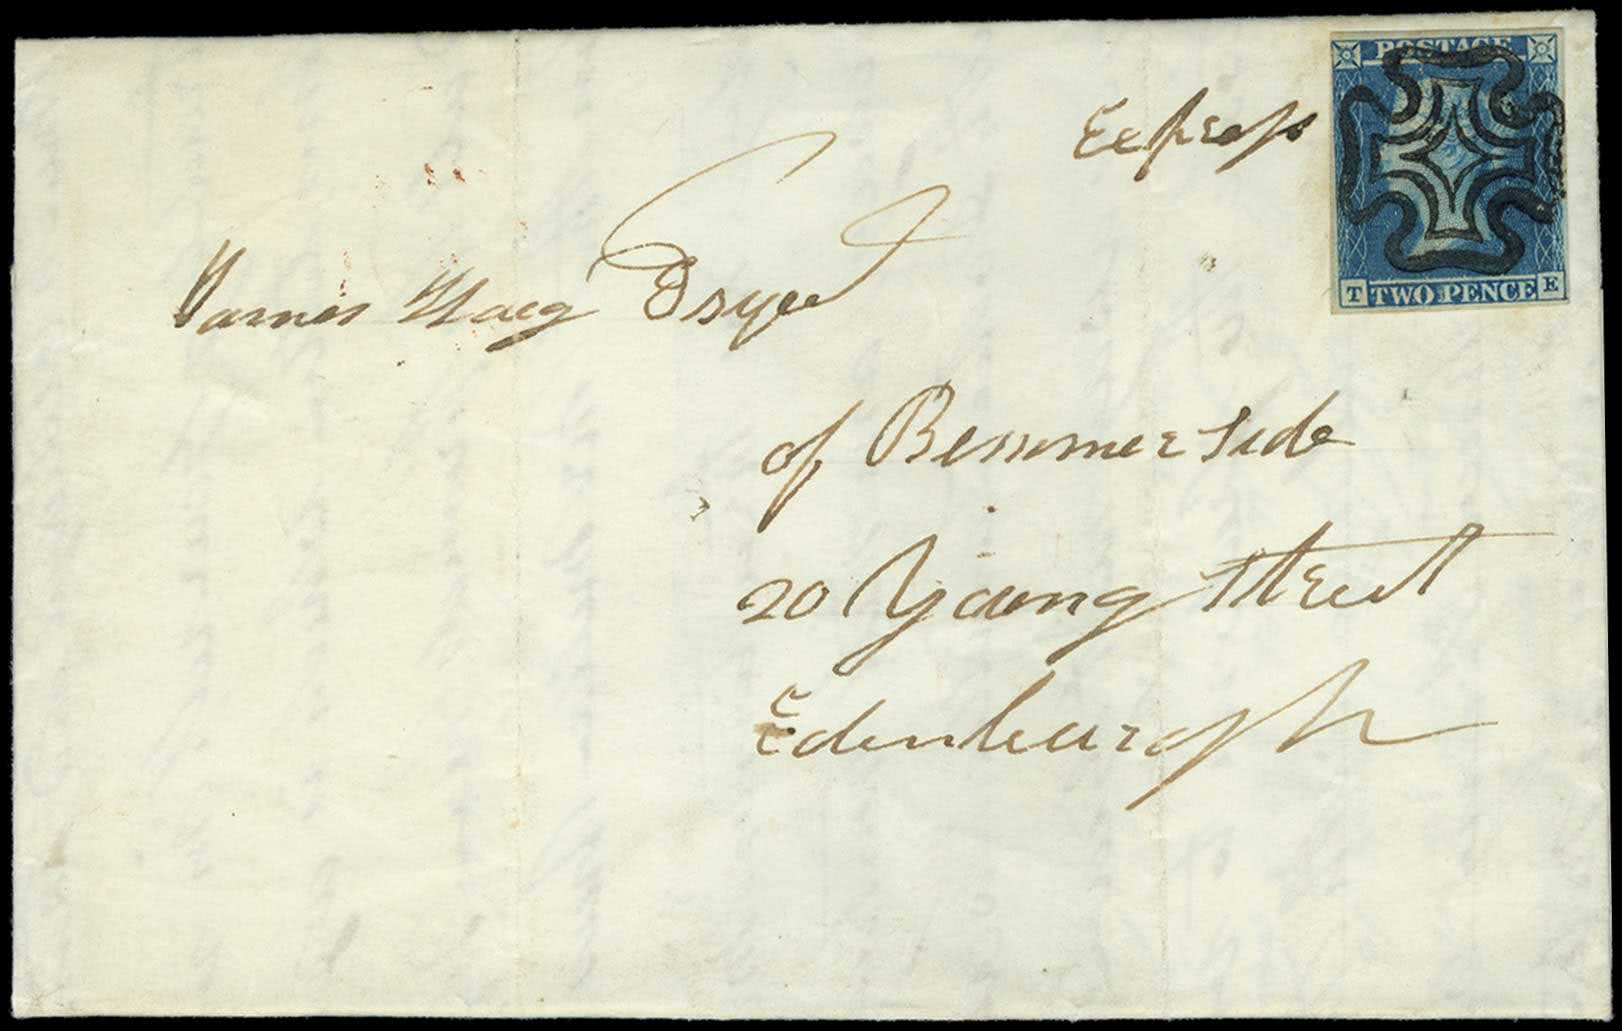 POSTAGE
Express
T TWO PENCE E
James Haig Esqre
of Bemmerside
20 Young Street
Edinburgh